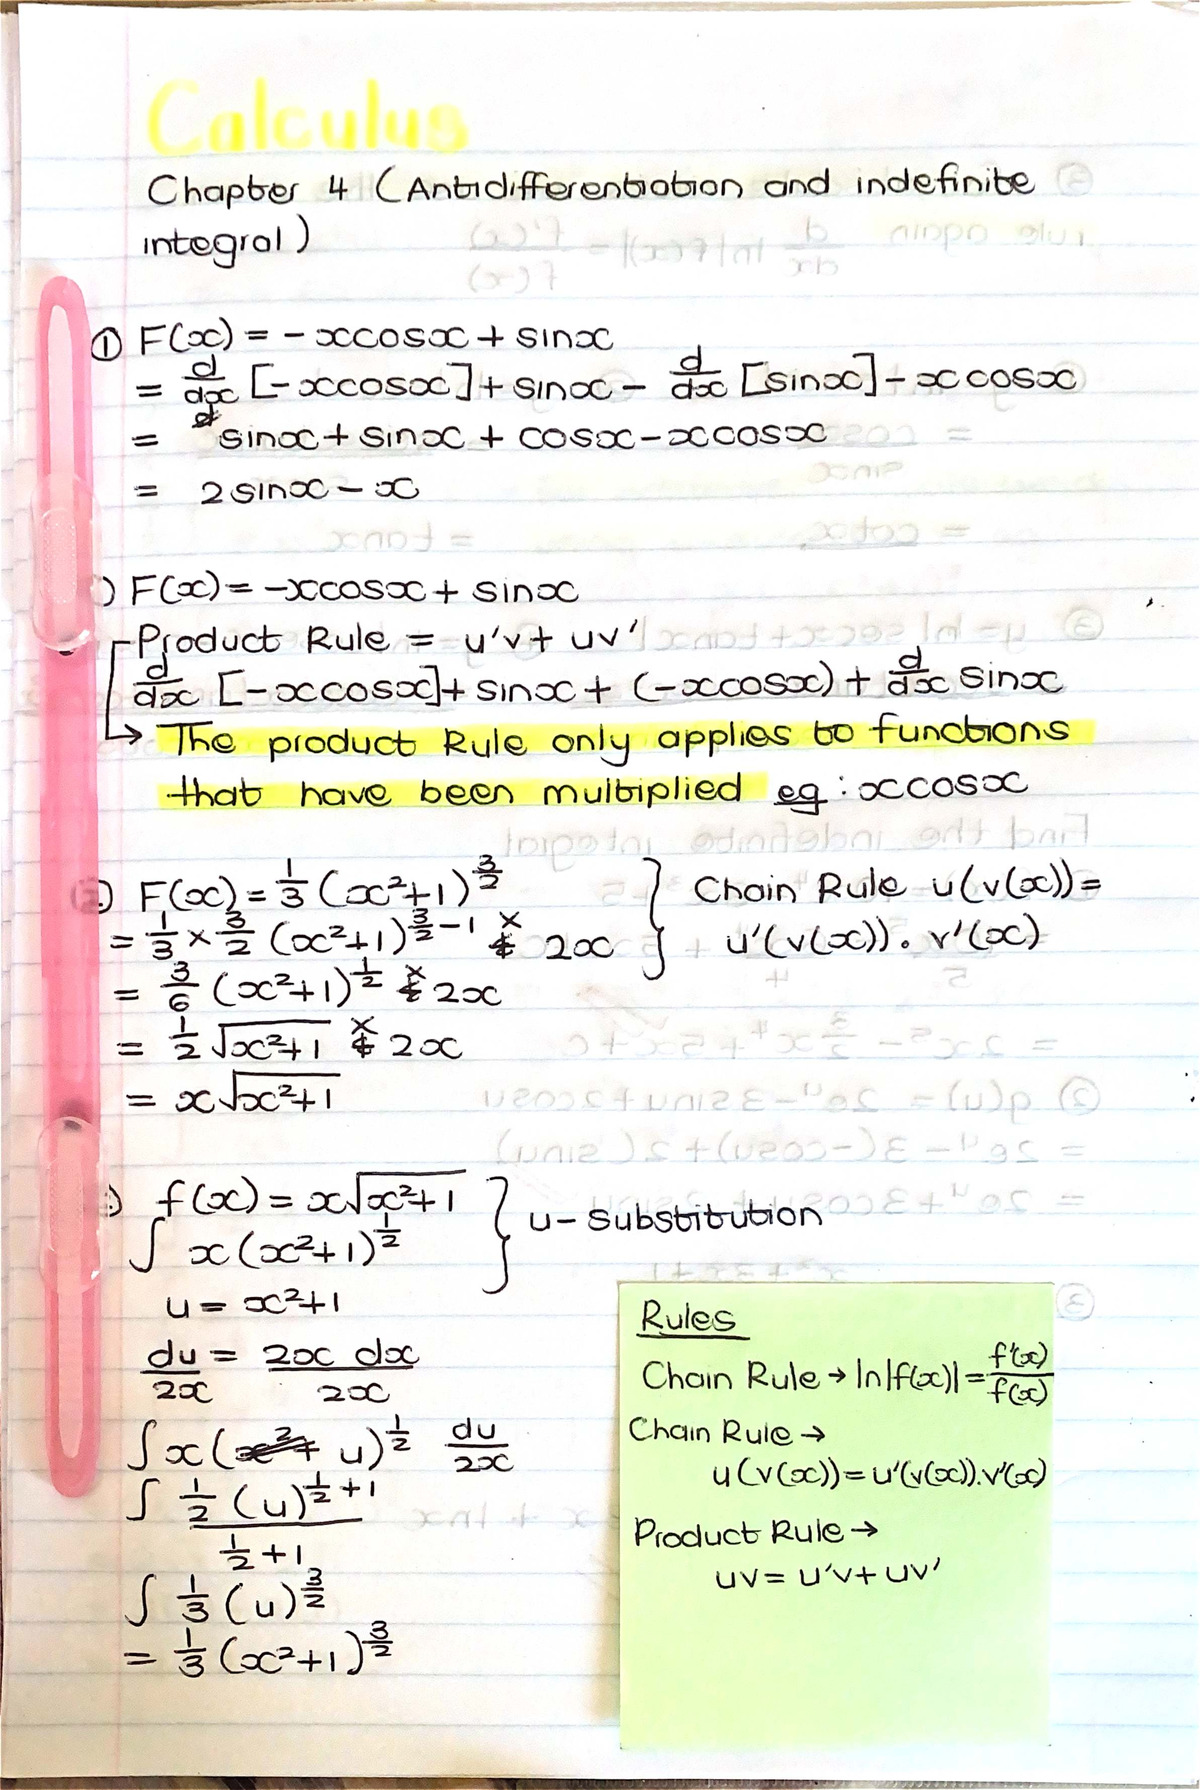 Calculus
Chapter 4 (Antidifferentiation and indefinite
integral)
① F(x) = - xcosx + sinx
= d/dx [-xcosx] + sinx - d/dx [sinx] - xcosx
= sinx + sinx + cosx - xcosx
= 2sinx - x
) F(x) = -xcosx + sinx
Product Rule = u'v + uv'
d/dx [-xcosx] + sinx + (-xcosx) + d/dx sinx
→ The product Rule only applies to functions
that have been multiplied eg : xcosx
2) F(x) = 1/3 (x²+1)^3/2 } Chain Rule u(v(x)) =
= 1/3 × 3/2 (x²+1)^3/2-1 × 2x u'(v(x)). v'(x)
= 3/6 (x²+1)^1/2 × 2x
= 1/2 √x²+1 × 2x
= x√x²+1
) f(x) = x√x²+1 } u-Substitution
∫ x(x²+1)^1/2
u = x²+1
du/2x = 2x dx/2x
∫ x(u)^1/2 du/2x
∫ 1/2 (u)^1/2+1 / 1/2+1
∫ 1/3 (u)^3/2
= 1/3 (x²+1)^3/2
Rules
Chain Rule → ln|f(x)| = f'(x)/f(x)
Chain Rule →
u(v(x)) = u'(v(x)).v'(x)
Product Rule →
uv = u'v + uv'